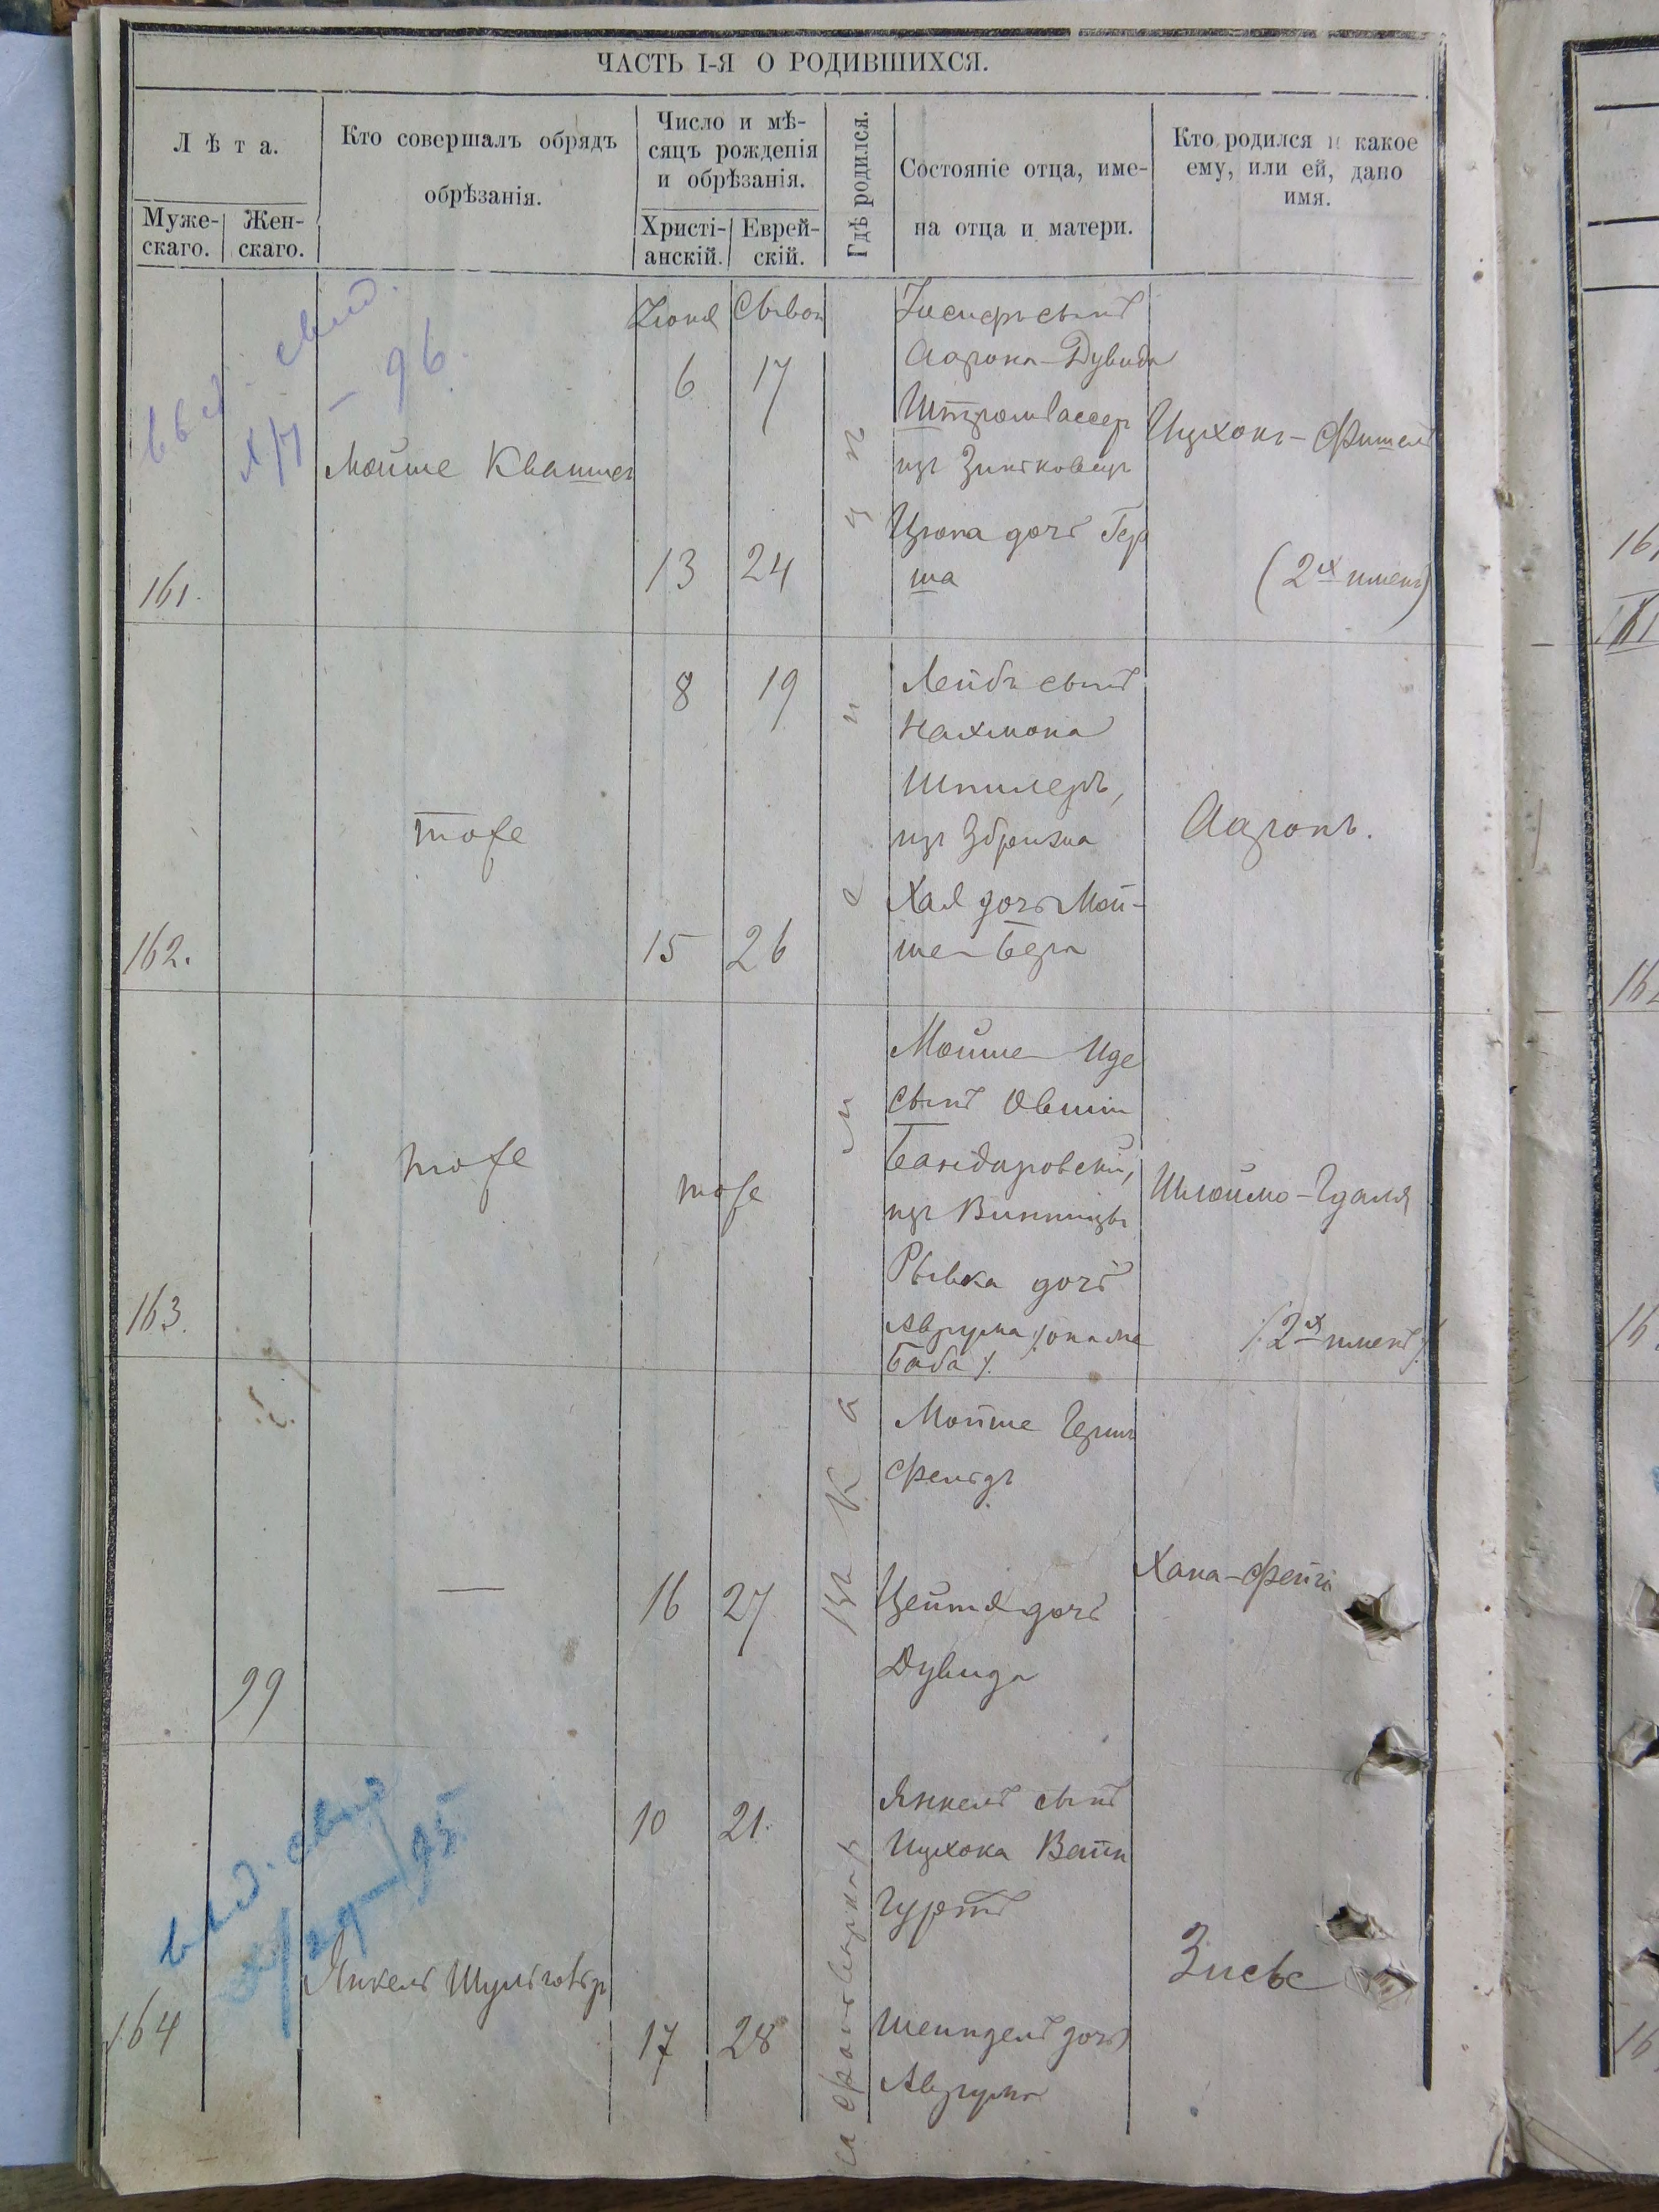 ЧАСТЬ I-Я О РОДИВШИХСЯ.
Лѣта.
Муже-
скаго.
Жен-
скаго.
Кто совершалъ обрядъ
обрѣзанія.
Число и мѣ-
сяцъ рожденія
и обрѣзанія.
Христі-
анскій.
Еврей-
скій.
Гдѣ родился.
Состояніе отца, име-
на отца и матери.
Кто родился и какое
ему, или ей, дано
имя.
выд. свид.
96.
161.
Мойше
Іюня
Сывон
6
17
13
24
Аарона-Дувида
Штромвассер
изъ Зиньковецъ
дочь Гер
ша
Ицхокъ-Фишель
(2х именъ)
162.
тоже
8
19
15
26
Лейбъ сынъ
Нахмона
Шпилеръ,
изъ Збрижа
Хая дочь Мой-
ше-Бера
Ааронъ.
163.
тоже
тоже
Мойше Иде
сынъ Овшии
Бандаровскій,
изъ Винницы
Рывка дочь
Аврума
Баба/.
Шлоймо-Гдаля
/2х именъ/
99
—
16
27
Мойше Герш
Фельдъ
Цейтя дочь
Дувида
Хана-Фейга
выд. свид
95
164
Янкель
10
21.
17
28
Янкель сынъ
Ицхока Вайн
гуртъ
Шейндель дочь
Аврума
Зисье